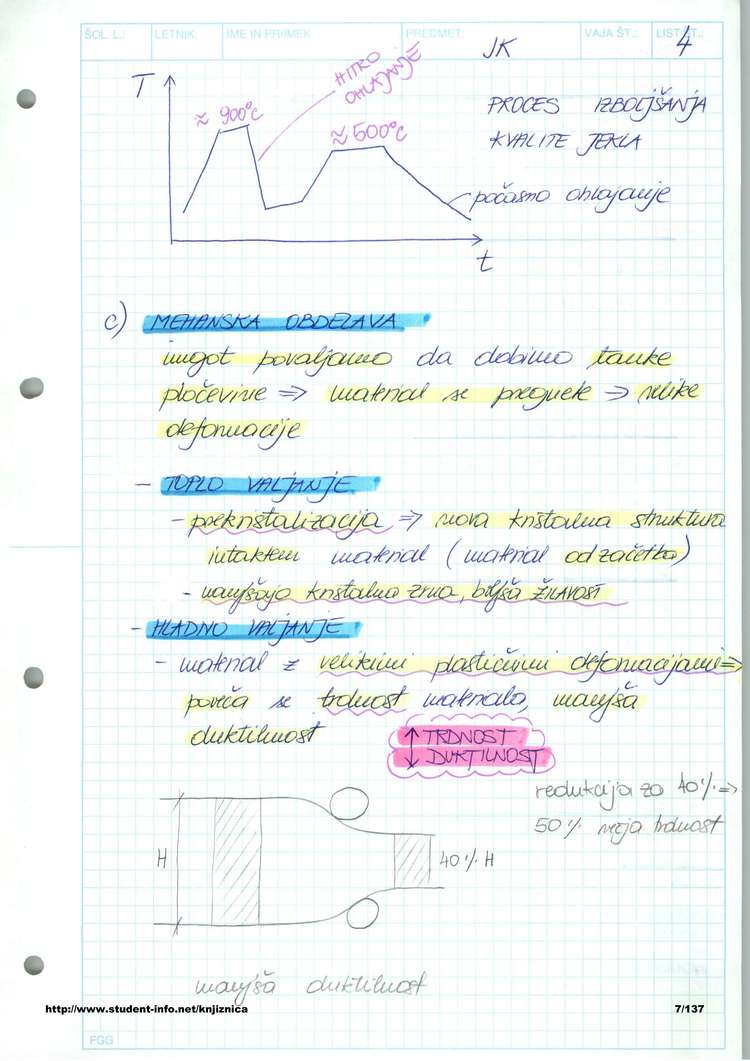 ŠOL. L.: LETNIK: IME IN PRIIMEK: PREDMET: VAJA ŠT.: LIST ŠT.:
JK 4
T
≈ 900°C
HITRO
OHLAJANJE
≈ 500°C
PROCES IZBOLJŠANJA
KVALITE JEKLA
počasno ohlajanje
t
c) MEHANSKA OBDELAVA
ingot povaljamo da dobimo tanke
pločevine => material se pregnete => velike
deformacije
- TOPLO VALJANJE
- prekristalizacija => nova kristalna struktura
intakten material (material od začetka)
- manjšajo kristalna zrna, boljša ŽILAVOST
- HLADNO VALJANJE
- material z velikimi plastičnimi deformacijami =>
poveča se trdnost materiala, manjša
duktilnost
↑ TRDNOST
↓ DUKTILNOST
redukcija za 40% =>
50% večja trdnost
H
40% H
manjša duktilnost
http://www.student-info.net/knjiznica
7/137
FGG